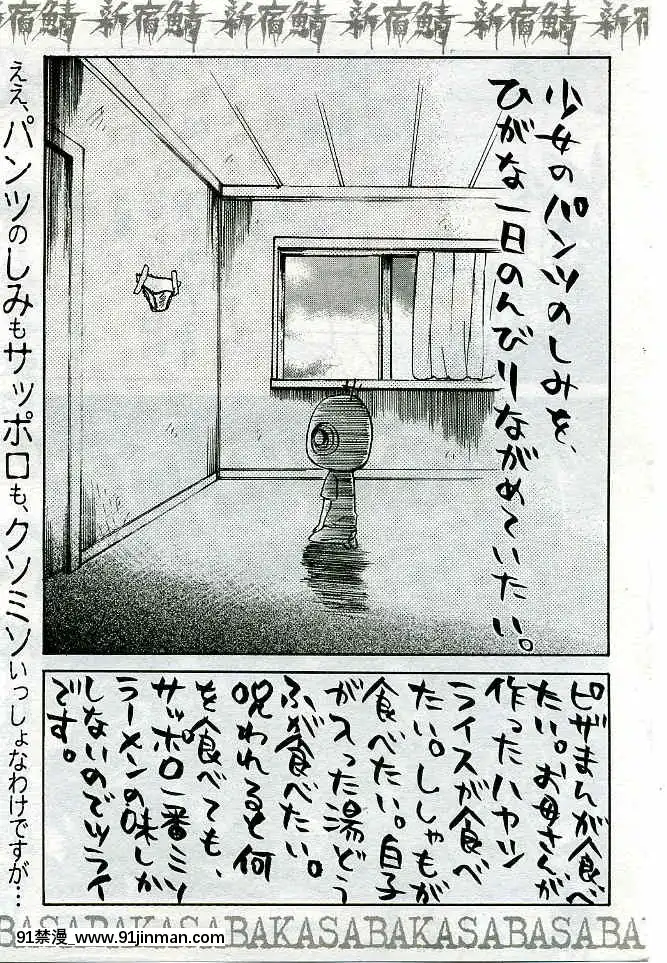 新宿鯖 新宿鯖 新宿鯖 新宿鯖
少女のパンツのしみを、
ひがな一日のんびりながめていたい。
ピザまんが食べ
たい。お母さんが
作ったハヤシ
ライスが食べ
たい。ししゃもが
食べたい。白子
が入った湯どう
ふが食べたい。
呪われると何
を食べても、
サッポロ一番ミソ
ラーメンの味しか
しないのでツライ
です。
ええ、パンツのしみもサッポロも、クソミソいっしょなわけですが…
BASABAKASABAKASABAKASABASABA
91禁漫-www.91jinman.com